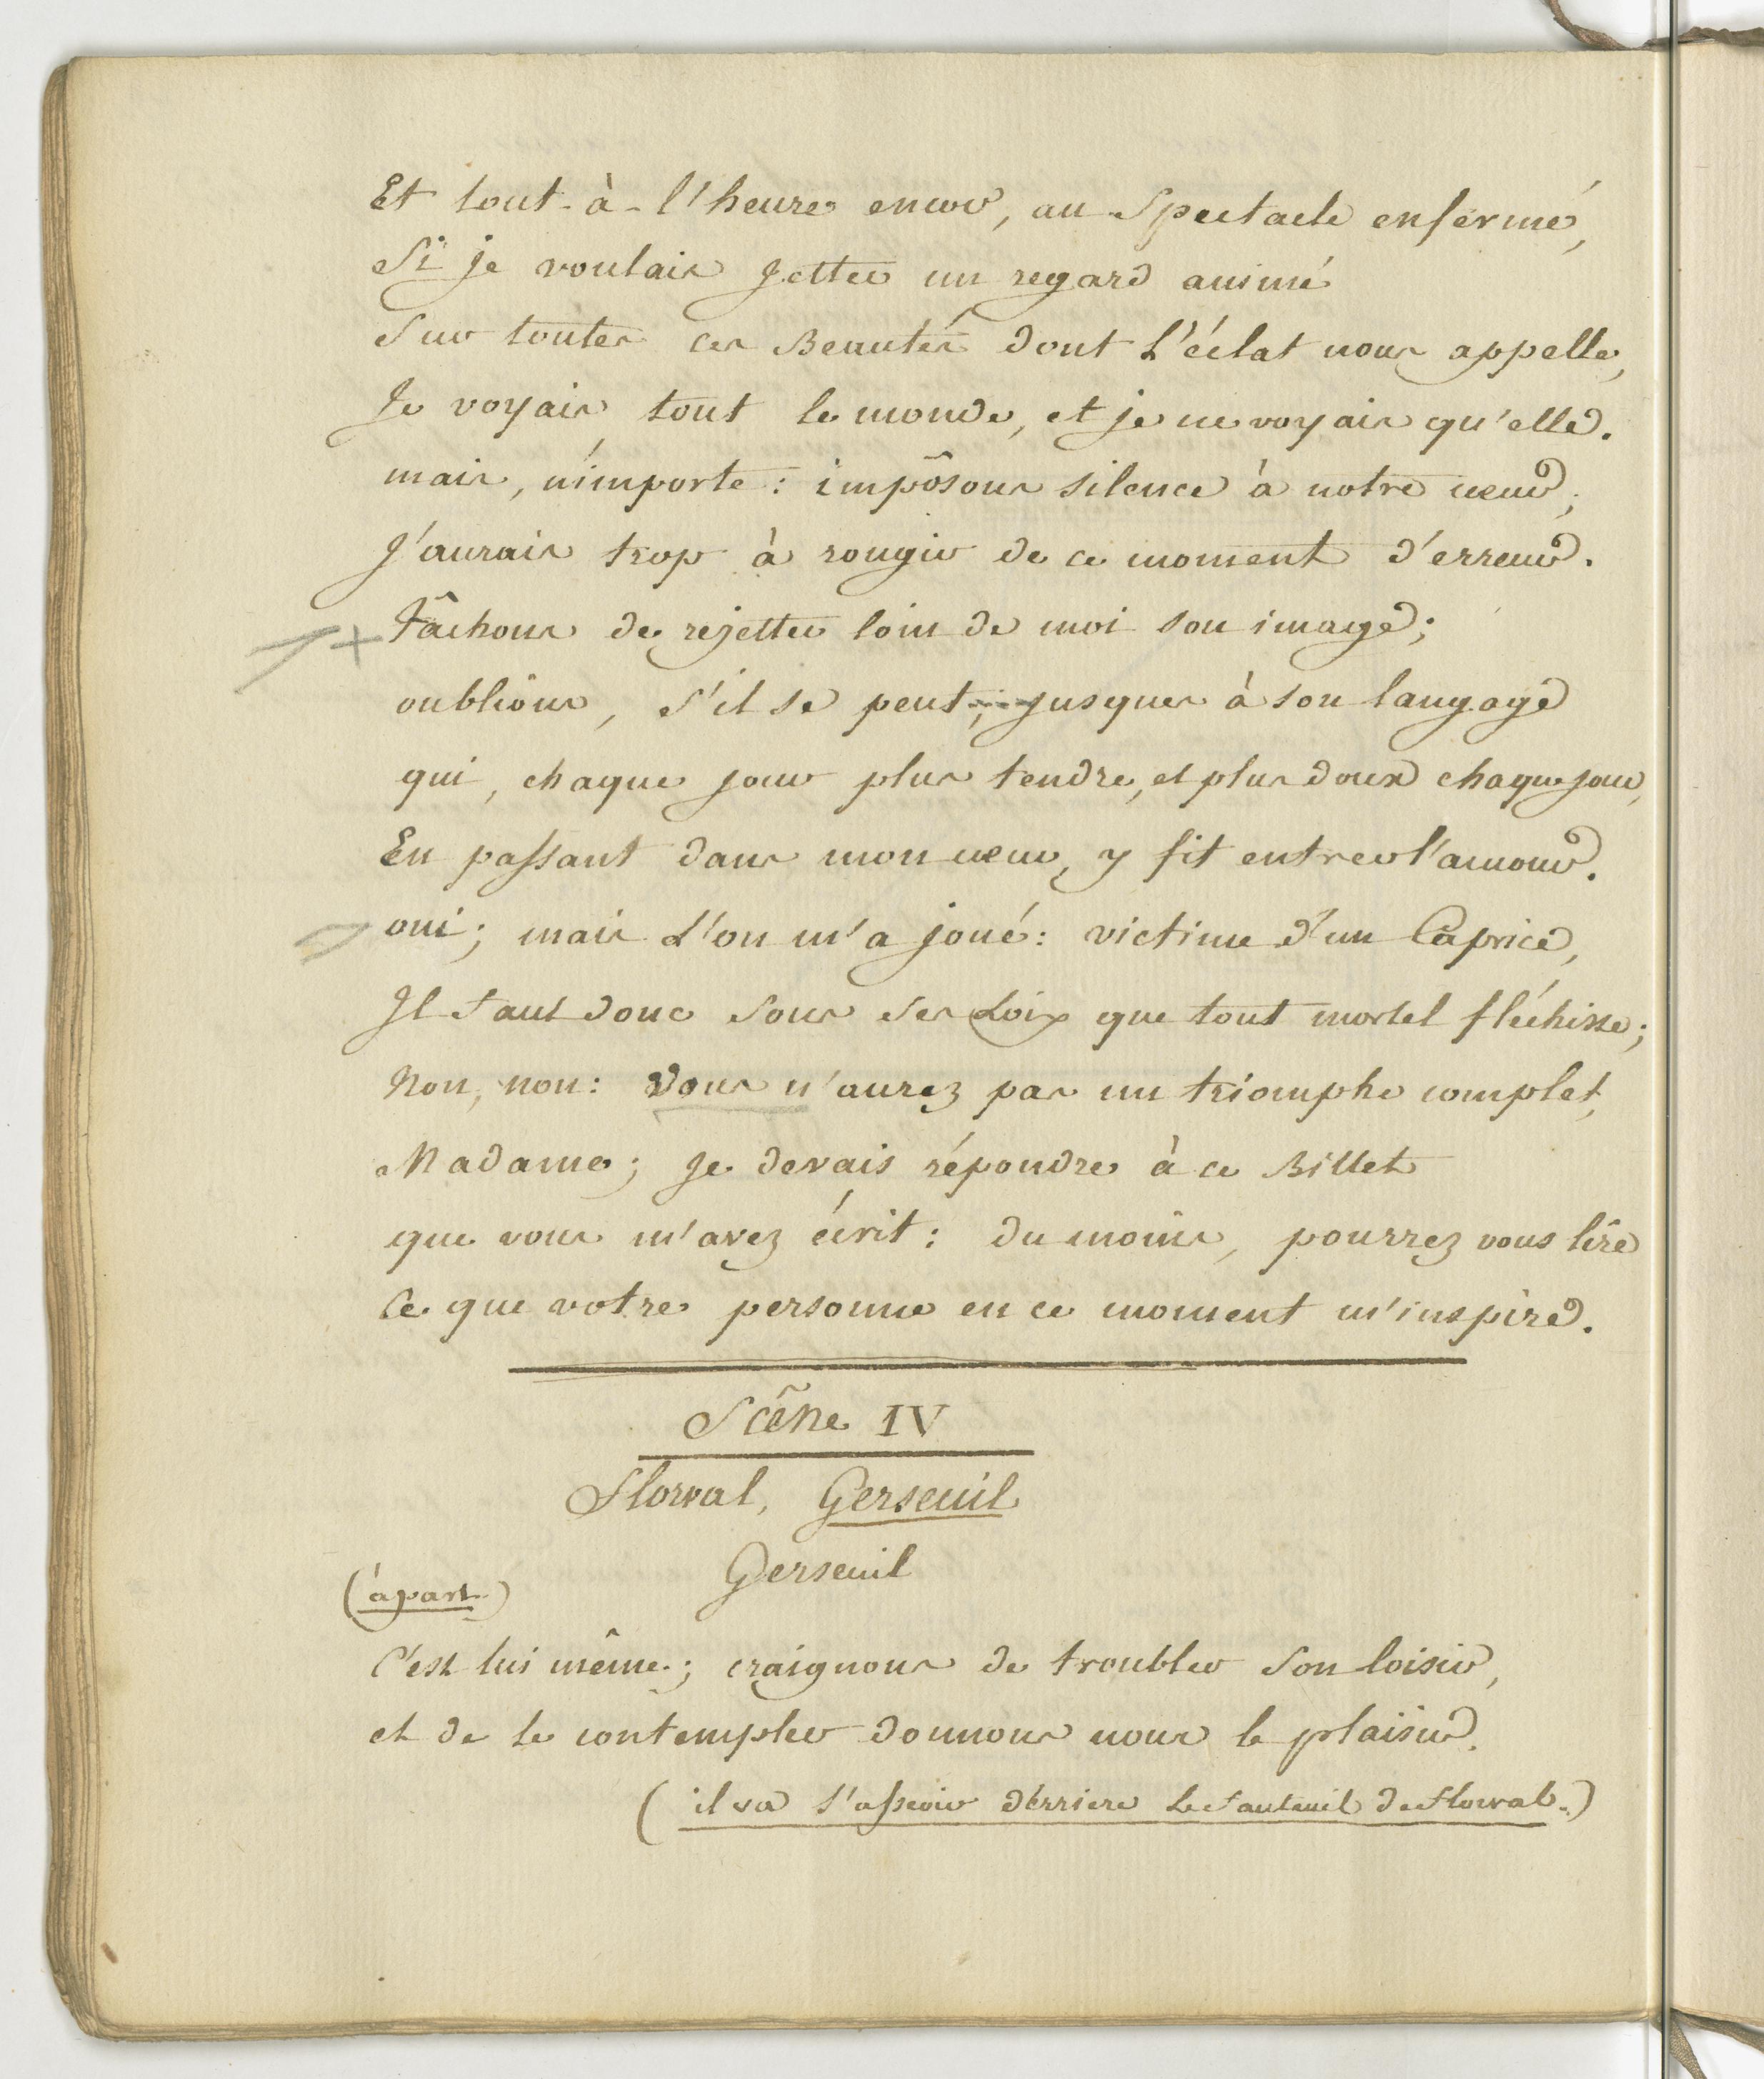 Et tout-à-l'heure encor, au Spectacle enfermé,
Si je voulais jetter un regard animé
Sur toutes ces Beautés dont l'éclat nous appelle,
Je voyais tout le monde, et je ne voyais qu'elle.
mais, n'importe : impôsons silence à notre cœur ;
J'aurais trop à rougir de ce moment d'erreur.
Tâchons de rejetter loin de moi son image ;
oublions, s'il se peut, jusques à son langage
qui, chaque jour plus tendre, et plus doux chaque jour,
En passant dans mon cœur, y fit entrer l'amour.
oui ; mais l'on m'a joué : victime d'un Caprice,
Il faut donc sous ses Loix que tout mortel fléchisse ;
Non, non : Vous n'aurez pas un triomphe complet,
Madame ; je devais répondre à ce Billet
que vous m'avez écrit : du moins, pourrez vous lire
Ce que votre personne en ce moment m'inspire.
Scêne IV
Florval, Gerseuil
Gerseuil
(à part)
C'est lui même ; craignons de troubler son loisir,
et de le contempler donnons nous le plaisir.
(il va s'asseoir dérriere le fauteuil de Florval.)